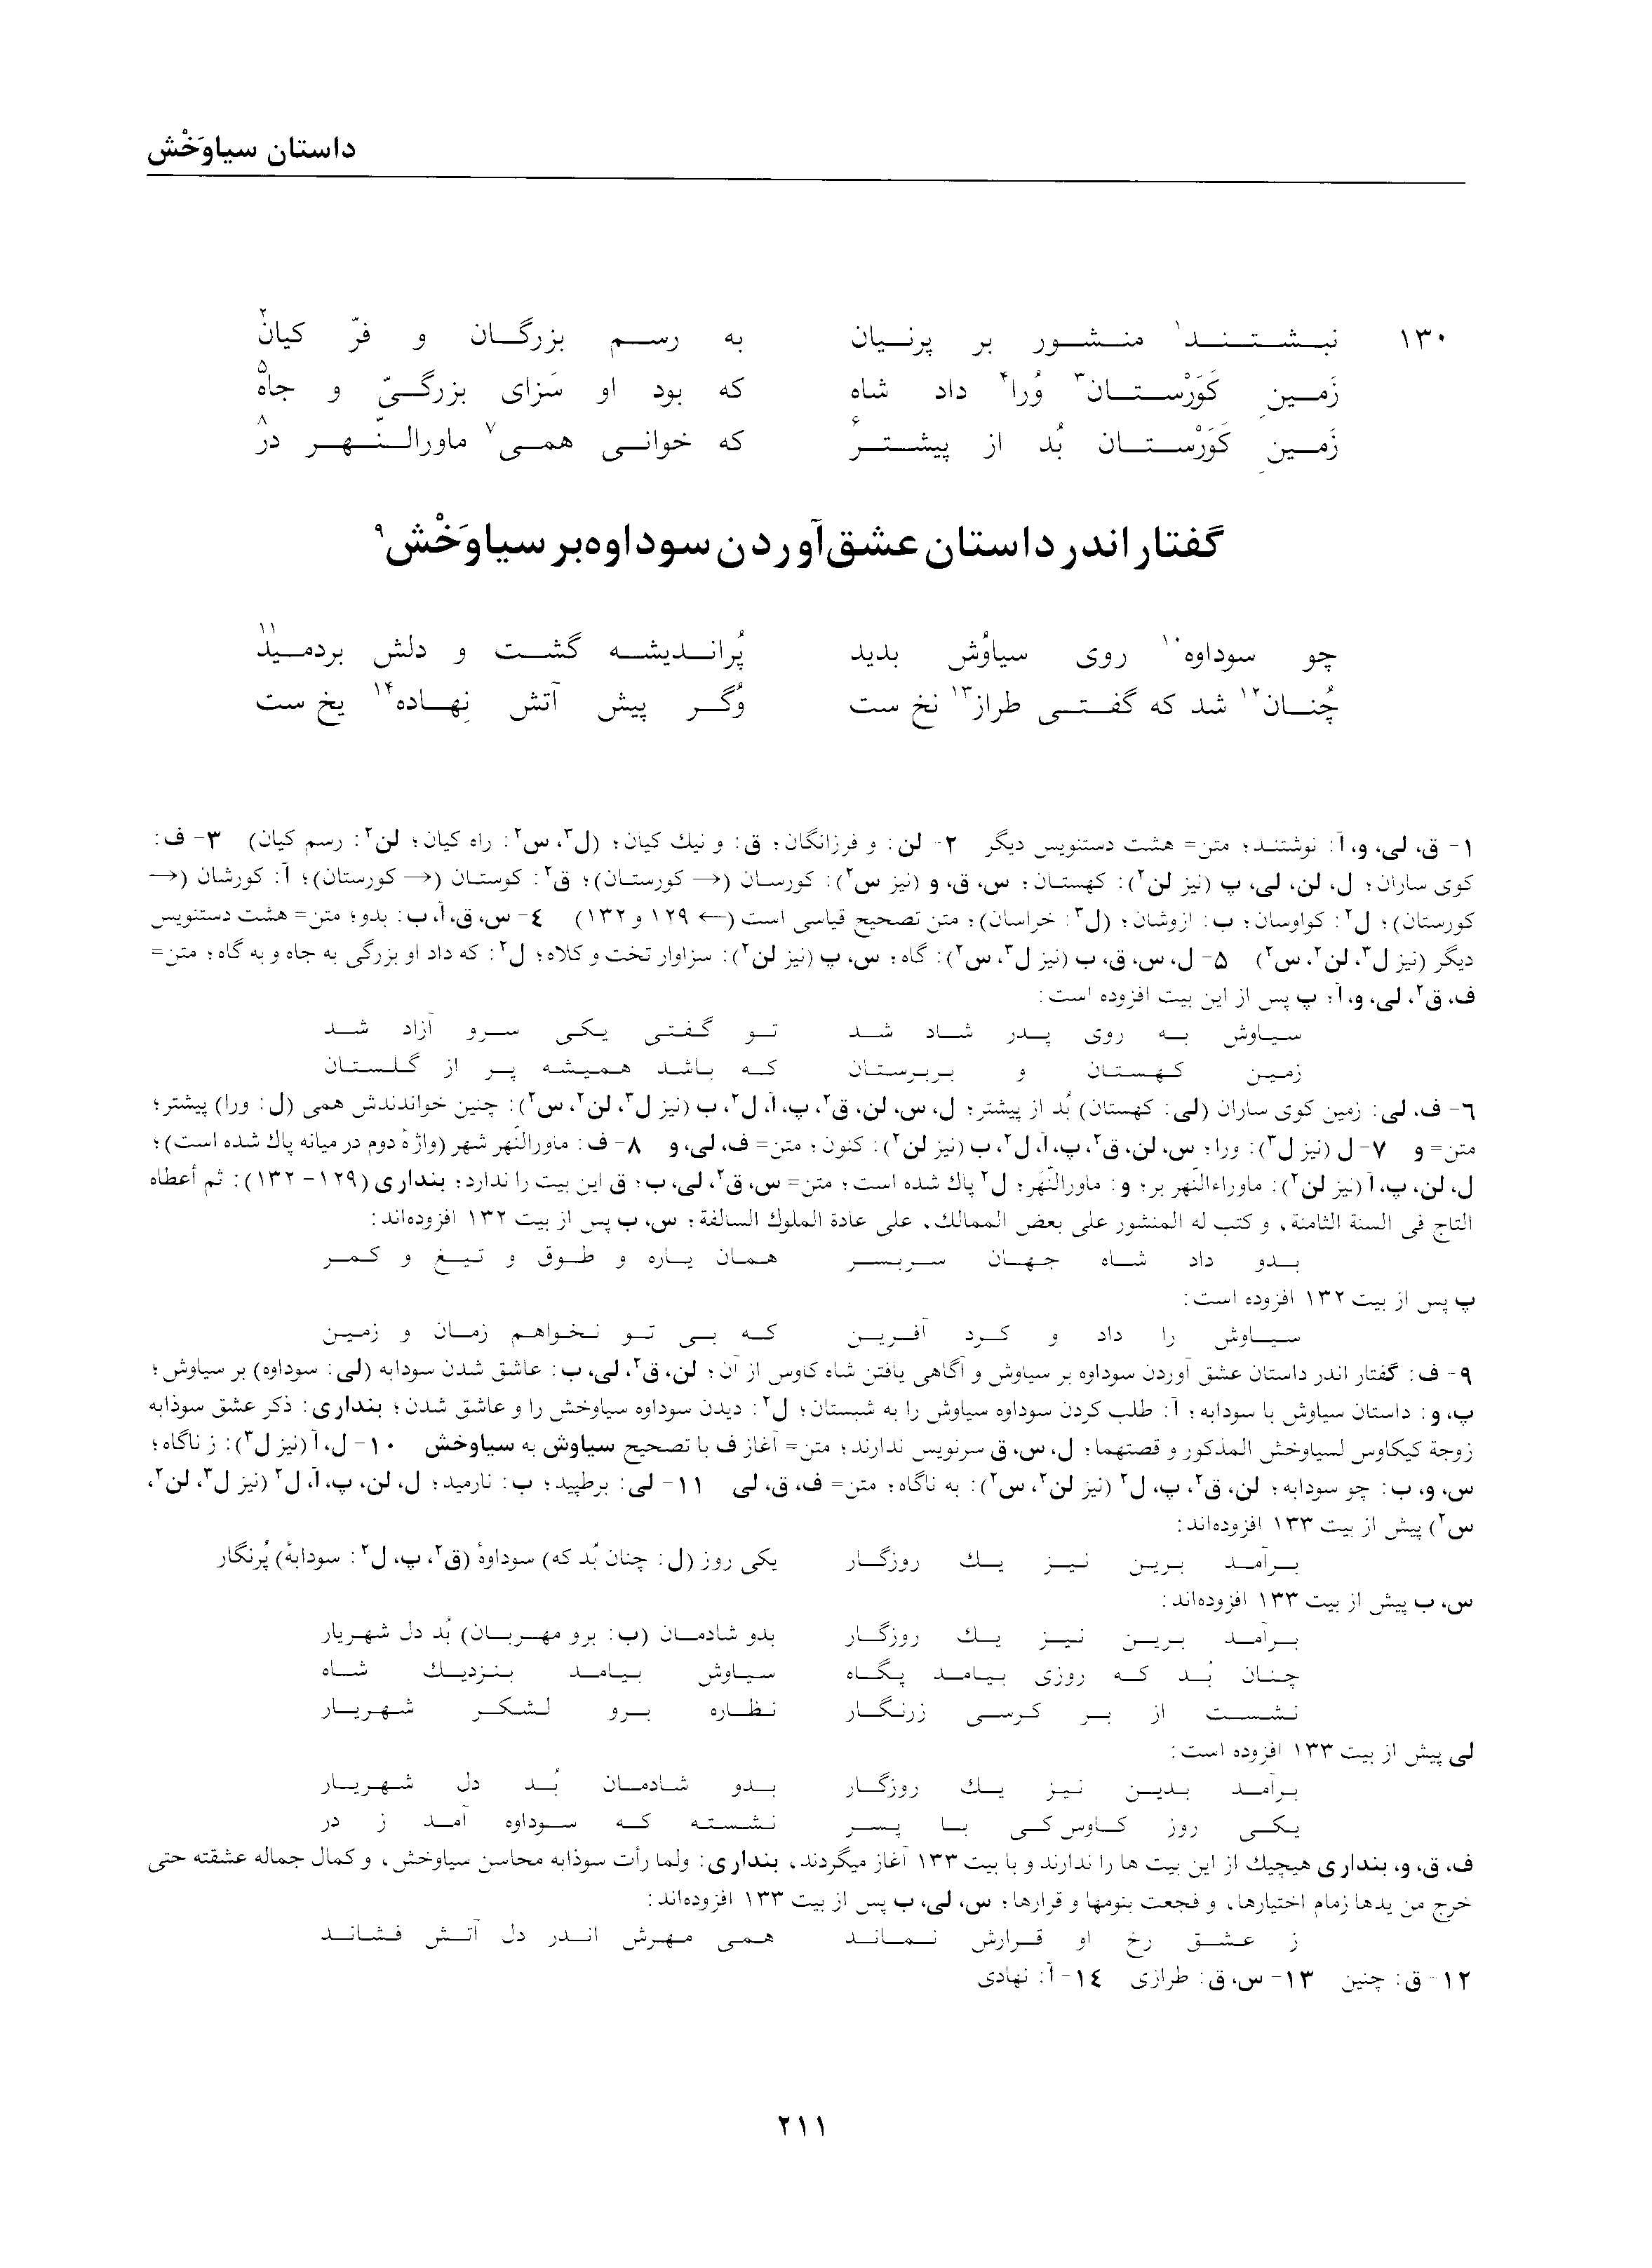 داستان سیاوَخْش
۱۳۰ نبشتند۱ منشور بر پرنیان به رسم بزرگان و فرّ کیان۲
زَمینِ کَوَرْستان۳ وُرا۴ داد شاه که بود او سَزای بزرگیّ و جاه۵
زَمینِ کَوَرْستان بُد از پیشتر۶ که خوانی همی۷ ماورالنّهر در۸
گفتار اندر داستان عشق‌آوردن سوداوه بر سیاوَخْش۹
چو سوداوه۱۰ روی سیاوُش بدید پُراندیشه گشت و دلش بردمید۱۱
چُنان۱۲ شد که گفتی طراز۱۳ نخ ست وُگر پیش آتش نِهاده۱۴ یخ ست
۱- ق، لی، و، آ: نوشتند؛ متن= هشت دستنویس دیگر ۲- لن: و فرزانگان؛ ق: و نیك کیان؛ (ل۳، س۲: راه کیان؛ لن۲: رسم کیان) ۳- ف:
کوی ساران؛ ل، لن، لی، پ (نیز لن۲): کهستان؛ س، ق، و (نیز س۲): کورسان (→ کورستان)؛ ق۲: کوستان (→ کورستان)؛ آ: کورشان (→
کورستان)؛ ل۲: کواوسان؛ ب: ازوشان؛ (ل۳: خراسان)؛ متن تصحیح قیاسی است (← ۱۲۹ و ۱۳۲) ۴- س، ق، آ، ب: بدو؛ متن= هشت دستنویس
دیگر (نیز ل۳، لن۲، س۲) ۵- ل، س، ق، ب (نیز ل۳، س۲): گاه؛ س، پ (نیز لن۲): سزاوار تخت و کلاه؛ ل۲: که داد او بزرگی به جاه و به گاه؛ متن=
ف، ق۲، لی، و، آ؛ پ پس از این بیت افزوده است:
سیاوش به روی پدر شاد شد تو گفتی یکی سرو آزاد شد
زمین کهستان و بربرستان که باشد همیشه پر از گلستان
۶- ف، لی: زمین کوی ساران (لی: کهستان) بُد از پیشتر؛ ل، س، لن، ق۲، پ، آ، ل۲، ب (نیز ل۳، لن۲، س۲): چنین خواندندش همی (ل: ورا) پیشتر؛
متن= و ۷- ل (نیز ل۳): ورا؛ س، لن، ق۲، پ، آ، ل۲، ب (نیز لن۲): کنون؛ متن= ف، لی، و ۸- ف: ماورالنّهر شهر (واژهٔ دوم در میانه پاك شده است)؛
ل، لن، پ، آ (نیز لن۲): ماوراءالنّهر بر؛ و: ماورالنّهَر؛ ل۲ پاك شده است؛ متن= س، ق۲، لی، ب؛ ق این بیت را ندارد؛ بنداری (۱۲۹- ۱۳۲): ثم أعطاه
التاج فی السنة الثامنة، و کتب له المنشور علی بعض الممالك، علی عادة الملوك السالفة؛ س، ب پس از بیت ۱۳۲ افزوده‌اند:
بدو داد شاه جهان سربسر همان یاره و طوق و تیغ و کمر
پ پس از بیت ۱۳۲ افزوده است:
سیاوش را داد و کرد آفرین که بی تو نخواهم زمان و زمین
۹- ف: گفتار اندر داستان عشق آوردن سوداوه بر سیاوش و آگاهی یافتن شاه کاوس از آن؛ لن، ق۲، لی، ب: عاشق شدن سودابه (لی: سوداوه) بر سیاوش؛
پ، و: داستان سیاوش با سودابه؛ آ: طلب کردن سوداوه سیاوش را به شبستان؛ ل۲: دیدن سوداوه سیاوخش را و عاشق شدن؛ بنداری: ذکر عشق سوذابه
زوجة کیکاوس لسیاوخش المذکور و قصتهما؛ ل، س، ق سرنویس ندارند؛ متن= آغاز ف با تصحیح سیاوش به سیاوخش ۱۰- ل، آ (نیز ل۳): ز ناگاه؛
س، و، ب: چو سودابه؛ لن، ق۲، پ، ل۲ (نیز لن۲، س۲): به ناگاه؛ متن= ف، ق، لی ۱۱- لی: برطپید؛ ب: نارمید؛ ل، لن، پ، آ، ل۲ (نیز ل۳، لن۲،
س۲) پیش از بیت ۱۳۳ افزوده‌اند:
برآمد برین نیز یك روزگار یکی روز (ل: چنان بُد که) سوداوهٔ (ق۲، پ، ل۲: سودابهٔ) پُرنگار
س، ب پیش از بیت ۱۳۳ افزوده‌اند:
برآمد برین نیز یك روزگار بدو شادمان (ب: برو مهربان) بُد دل شهریار
چنان بُد که روزی بیامد پگاه سیاوش بیامد بنزدیك شاه
نشست از بر کرسی زرنگار نظاره برو لشکر شهریار
لی پیش از بیت ۱۳۳ افزوده است:
برآمد بدین نیز یك روزگار بدو شادمان بُد دل شهریار
یکی روز کاوس کی با پسر نشسته که سوداوه آمد ز در
ف، ق، و، بنداری هیچیك از این بیت ها را ندارند و با بیت ۱۳۳ آغاز میگردند، بنداری: ولما رأت سوذابه محاسن سیاوخش، و کمال جماله عشقته حتی
خرج من یدها زمام اختیارها، و فجعت بنومها و قرارها؛ س، لی، ب پس از بیت ۱۳۳ افزوده‌اند:
ز عشق رخ او قرارش نماند همی مهرش اندر دل آتش فشاند
۱۲- ق: چنین ۱۳- س، ق: طرازی ۱۴- آ: نهادی
۲۱۱